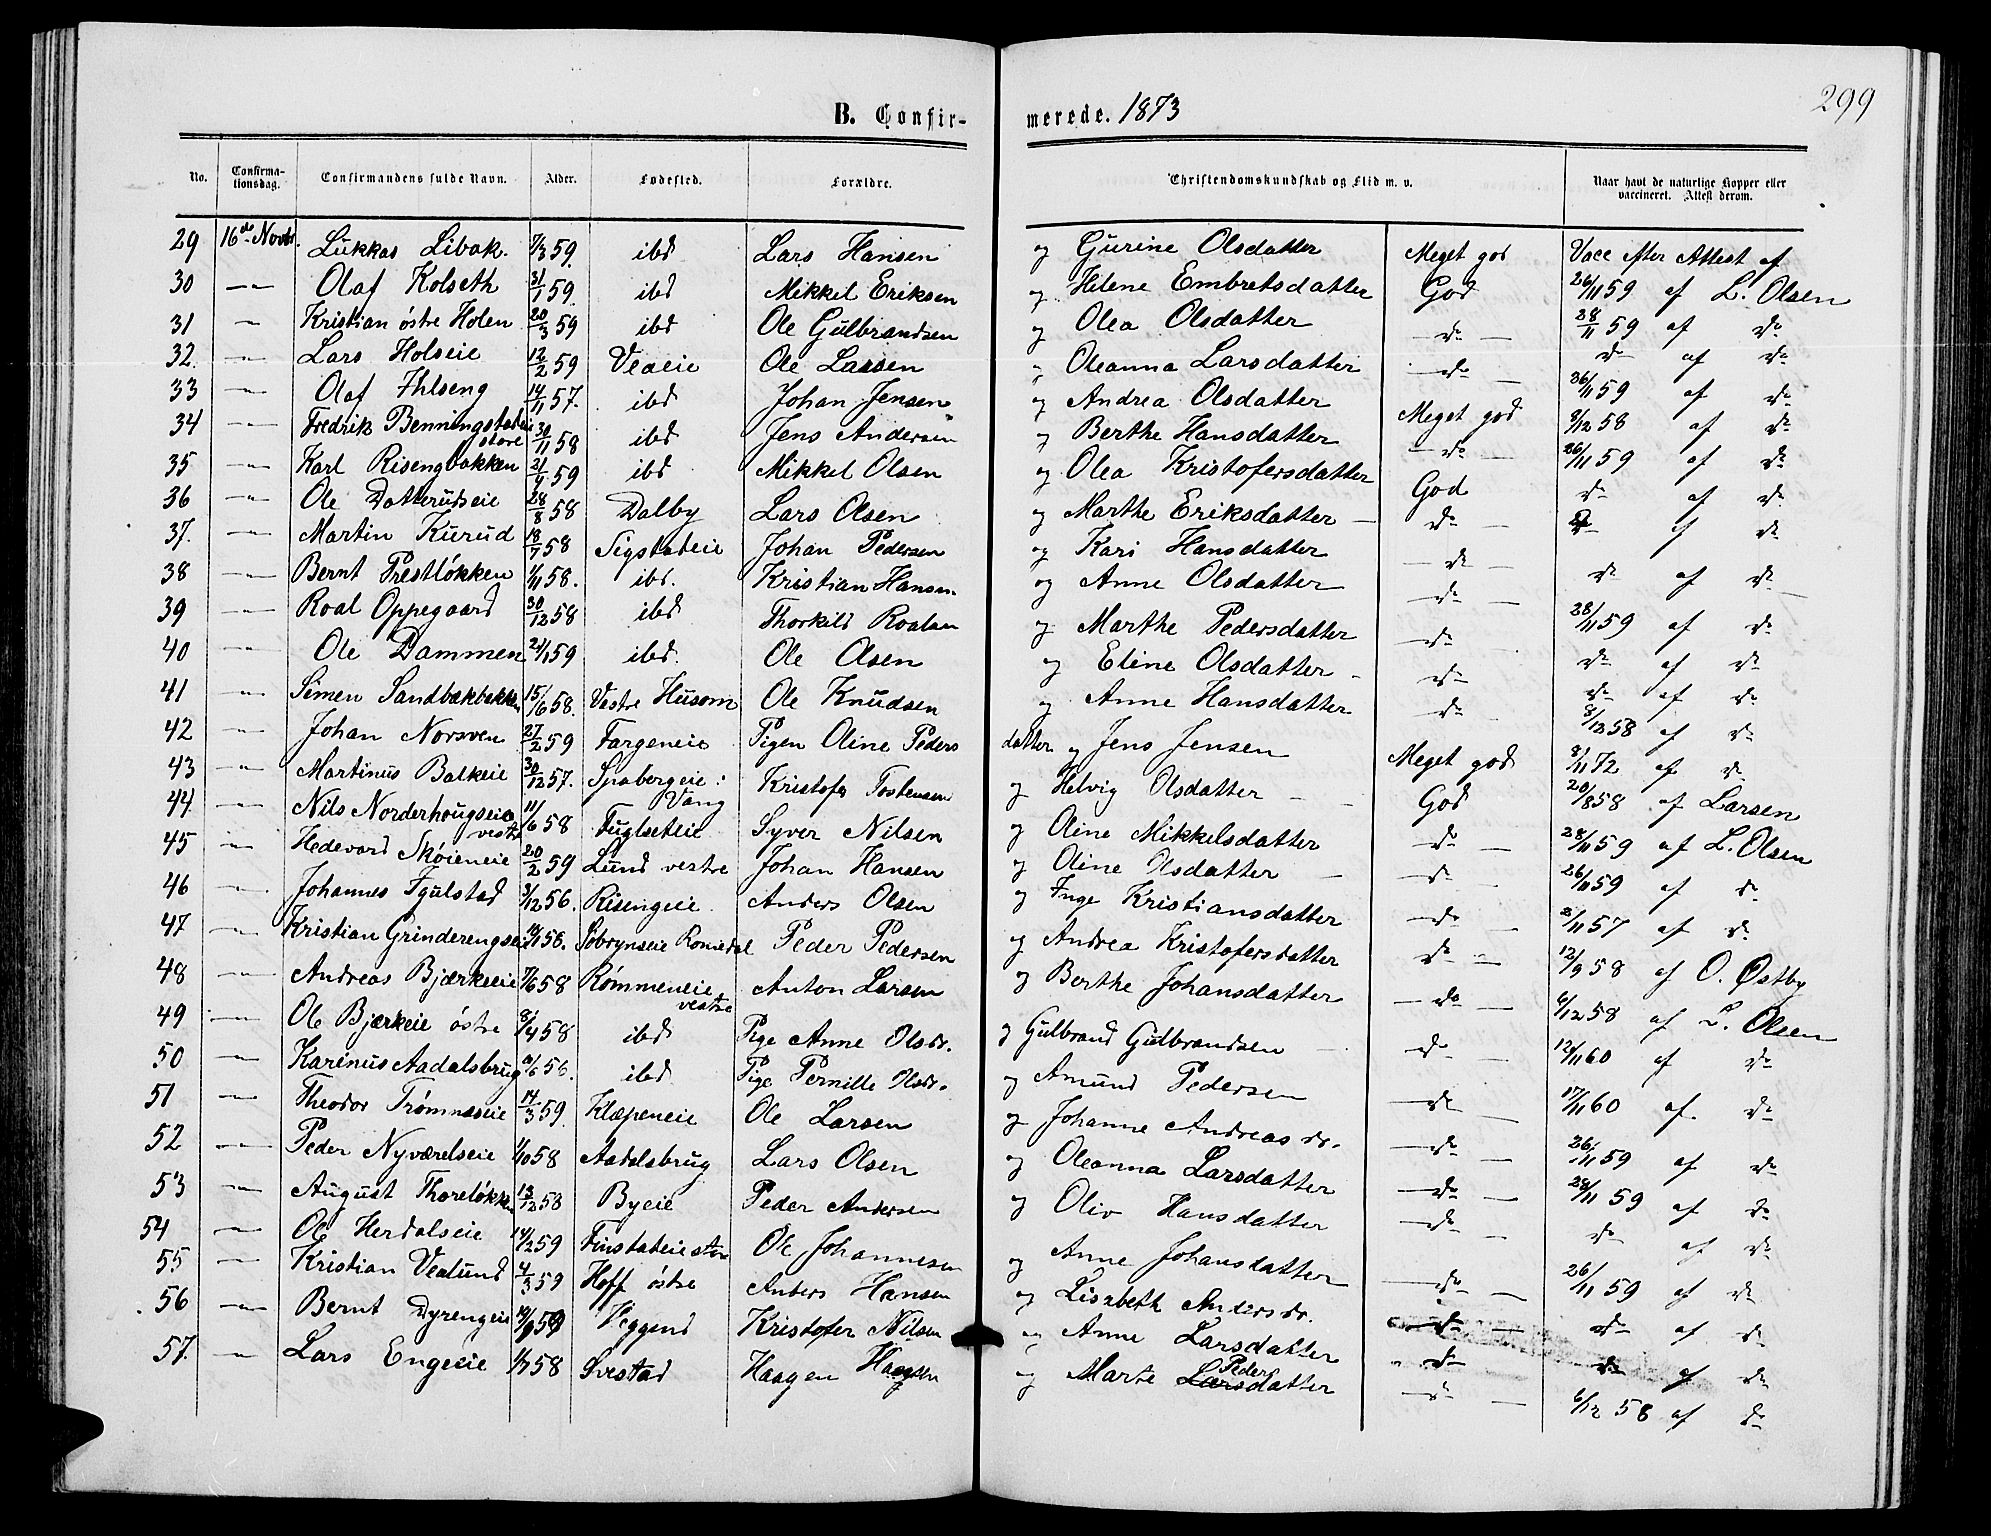 299
B. Confirmerede. 1873
No. Confirmationsdag. Confirmandens fulde Navn. Alder. Fødested. Forældre. Christendomskundskab og Flid m. v. Naar havt de naturlige Kopper eller vaccineret. Attest derom.
29 16de Novbr. Lukkas Libak. 7/3 59. ibd Lars Hansen og Gurine Olsdatter Meget god Vacc efter Attest af
30 —"— Olaf Kolseth 31/1 59. ibd Mikkel Eriksen og Helene Embretsdatter God 26/11 59 af L. Olsen
31 —"— Kristian østre Holen 20/3 59 ibd Ole Gulbrandsen og Olea Olsdatter —do— 28/11 59 af do
32. —"— Lars Holseie 12/2 59 Veaeie Ole Larsen og Oleanna Larsdatter —do— do af do
33 —"— Olaf Ihlseng 14/11 57. ibd Johan Jensen og Andrea Olsdatter Meget god 26/11 59 af do
34 —"— Fredrik Benningstadeie store 30/11 58 ibd Jens Andersen og Berthe Hansdatter —do— 8/12 58 af do
35 —"— Karl Risengbakken 21/4 59 ibd Mikkel Olsen og Olea Kristofersdatter God 26/11 59 af do
36 —"— Ole Datterudseie 28/8 58 Dalby Lars Olsen og Marthe Eriksdatter — do — do af do
37. —"— Martin Kurud 18/7 58 Sigstadeie Johan Pedersen og Kari Hansdatter —do— do af do
38 —"— Bernt Prestløkken 1/11 58. ibd. Kristian Hansen. og Anne Olsdatter —do— do af do
39 —"— Roal Oppegaard 30/12 58 ibd Thorkild Roalsen og Marthe Pedersdatter —do— 28/11 59 af do
40 —"— Ole Dammen 21/1 59 ibd. Ole Olsen og Eline Olsdatter —do— do af do
41 —"— Simen Sandbakbakken 15/6 58. Vestre Husom Ole Knudsen og Anne Hansdatter —do— do af do
42 —"— Johan Norsven 27/2 59 Fargeneie Pigen Oline Pedersdatter og Jens Jensen Meget god 8/12 58 af do
43 —"— Martinus Balkeie 30/12 57. Spabergeie: Vang Kristofer Tostensen og Helvig Olsdatter — — God 8/11 72 af do
44 —"— Nils Norderhougseie vestre 11/6 58 Fuglseteie Syver Nilsen og Oline Mikkelsdatter —do— 20/8 58 af Larsen
45 —"— Hedevard Skøieneie 20/2 59 Lund vestre Johan Hansen og Oline Olsdatter — —do— 28/11 59 af L. Olsen
46 —"— Johannes Fgulstad 3/12 56. Risengeie Anders Olsen og Inge Kristiansdatter —do— 26/11 59 af do
47 —"— Kristian Grinderengseie 58. Sobrynseie Romedal Peder Pedersen og Andrea Kristofersdatter —do— 8/11 57 af do
48 —"— Andreas Bjærkeeie 7/6 58 Rømmeneie vestre Anton Larsen og Berthe Johansdatter —do— 12/9 58 af O. Østby
49 —"— Ole Bjærkeie østre 8/4 58 ibd Pige Anne Olsdr. og Gulbrand Gulbrandsen —do— 6/12 58 af L. Olsen
50 —"— Karinus Aadalsbrug ibd Pige Pernille Olsdr. og Amund Pedersen —do— 12/11 60 af do
51 —"— Theodor Trømnæseie 14/3 59. Klæpeneie Ole Larsen og Johanne Andreasdr. —do— 17/11 60 af. do
52 —"— Peder Nyværelseie 1/10 58 Aadalsbrug Lars Olsen og Oleanna Larsdatter —do— 26/11 59 af do
53 —"— August Thoreløkken 13/12 58 Byeie Peder Andersen og Oliv Hansdatter —do— 28/11 59 af do
54 —"— Ole Herdalseie 14/2 59 Finstadeie store Ole Johannesen og Anne Johansdatter —do— do af do
55 —"— Kristian Vealund 4/3 59 Hoff østre Anders Hansen og Lisabeth Andersdr. —do— 26/11 59 af do
56 —"— Bernt Dyrengeie Veggend Kristofer Nilsen og Anne Larsdatter —do— do af do
57. —"— Lars Engeeie 1/7 58 Svestad Haagen Haagsen og Marte Pedersdatter —do— do af do
6/12 58 af do